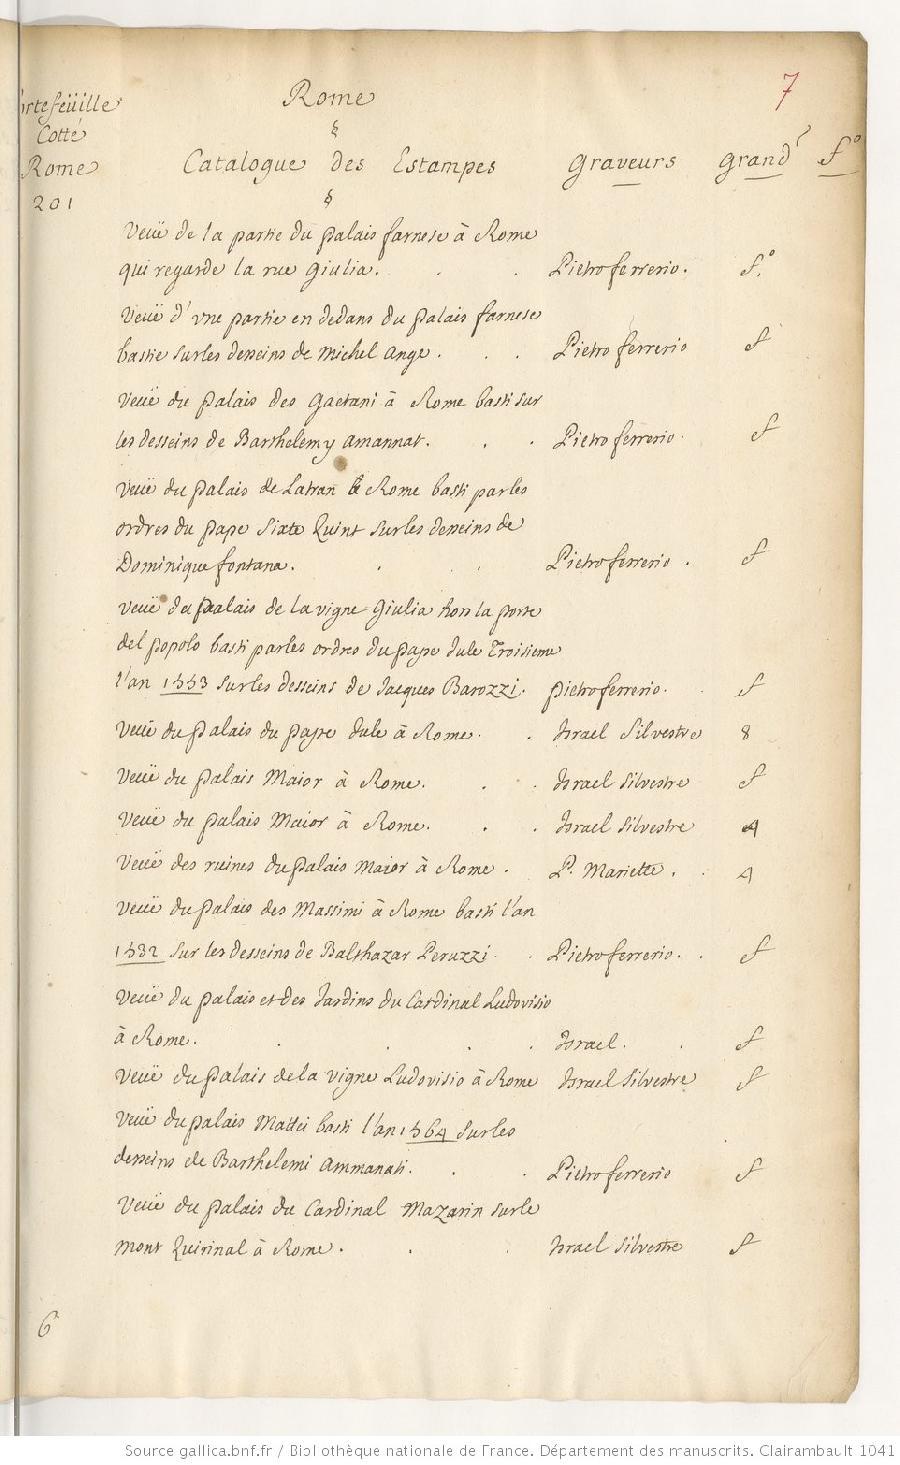 7
Rome
Portefeüille
Cotté
Rome
201
§
Catalogue des Estampes Graveurs Grandr fo
§
Veüe de la partie du palais farnese à Rome
qui regarde la rue Giulia. Pietro ferrerio. fo
Veüe d'vne partie en dedans du palais farnese
bastie sur les desseins de Michel Ange. Pietro ferrerio f
Veüe du palais des Gaetani à Rome basti sur
les desseins de Barthelemy Amannat. Pietro ferrerio. f
Veüe du palais de Latran à Rome basti par les
ordres du pape Sixte Quint sur les desseins de
Dominique fontana. Pietro ferrerio. f
Veüe du palais de la vigne Giulia hors la porte
del popolo basti par les ordres du pape Jule Troisieme
l'an 1553 sur les desseins de Jacques Barozzi. pietro ferrerio. f
Veüe du palais du pape Jule à Rome. Israel Silvestre 8
Veüe du palais Maior à Rome. Israel Silvestre f
Veüe du palais Maior à Rome. Israel Silvestre 4
Veüe des ruines du palais Maior à Rome. P. Mariette. 4
Veüe du palais des Massimi à Rome basti l'an
1532 sur les desseins de Balthazar Peruzzi. Pietro ferrerio. f
Veüe du palais et des Jardins du Cardinal Ludovisio
à Rome. Israel. f
Veüe du palais de la vigne Ludovisio à Rome Israel Silvestre f
Veüe du palais Mattei basti l'an 1564 sur les
desseins de Barthelemi Ammanati. Pietro ferrerio f
Veüe du palais du Cardinal Mazarin sur le
mont Quirinal à Rome. Israel Silvestre f
6
Source gallica.bnf.fr / Bibliothèque nationale de France. Département des manuscrits. Clairambault 1041